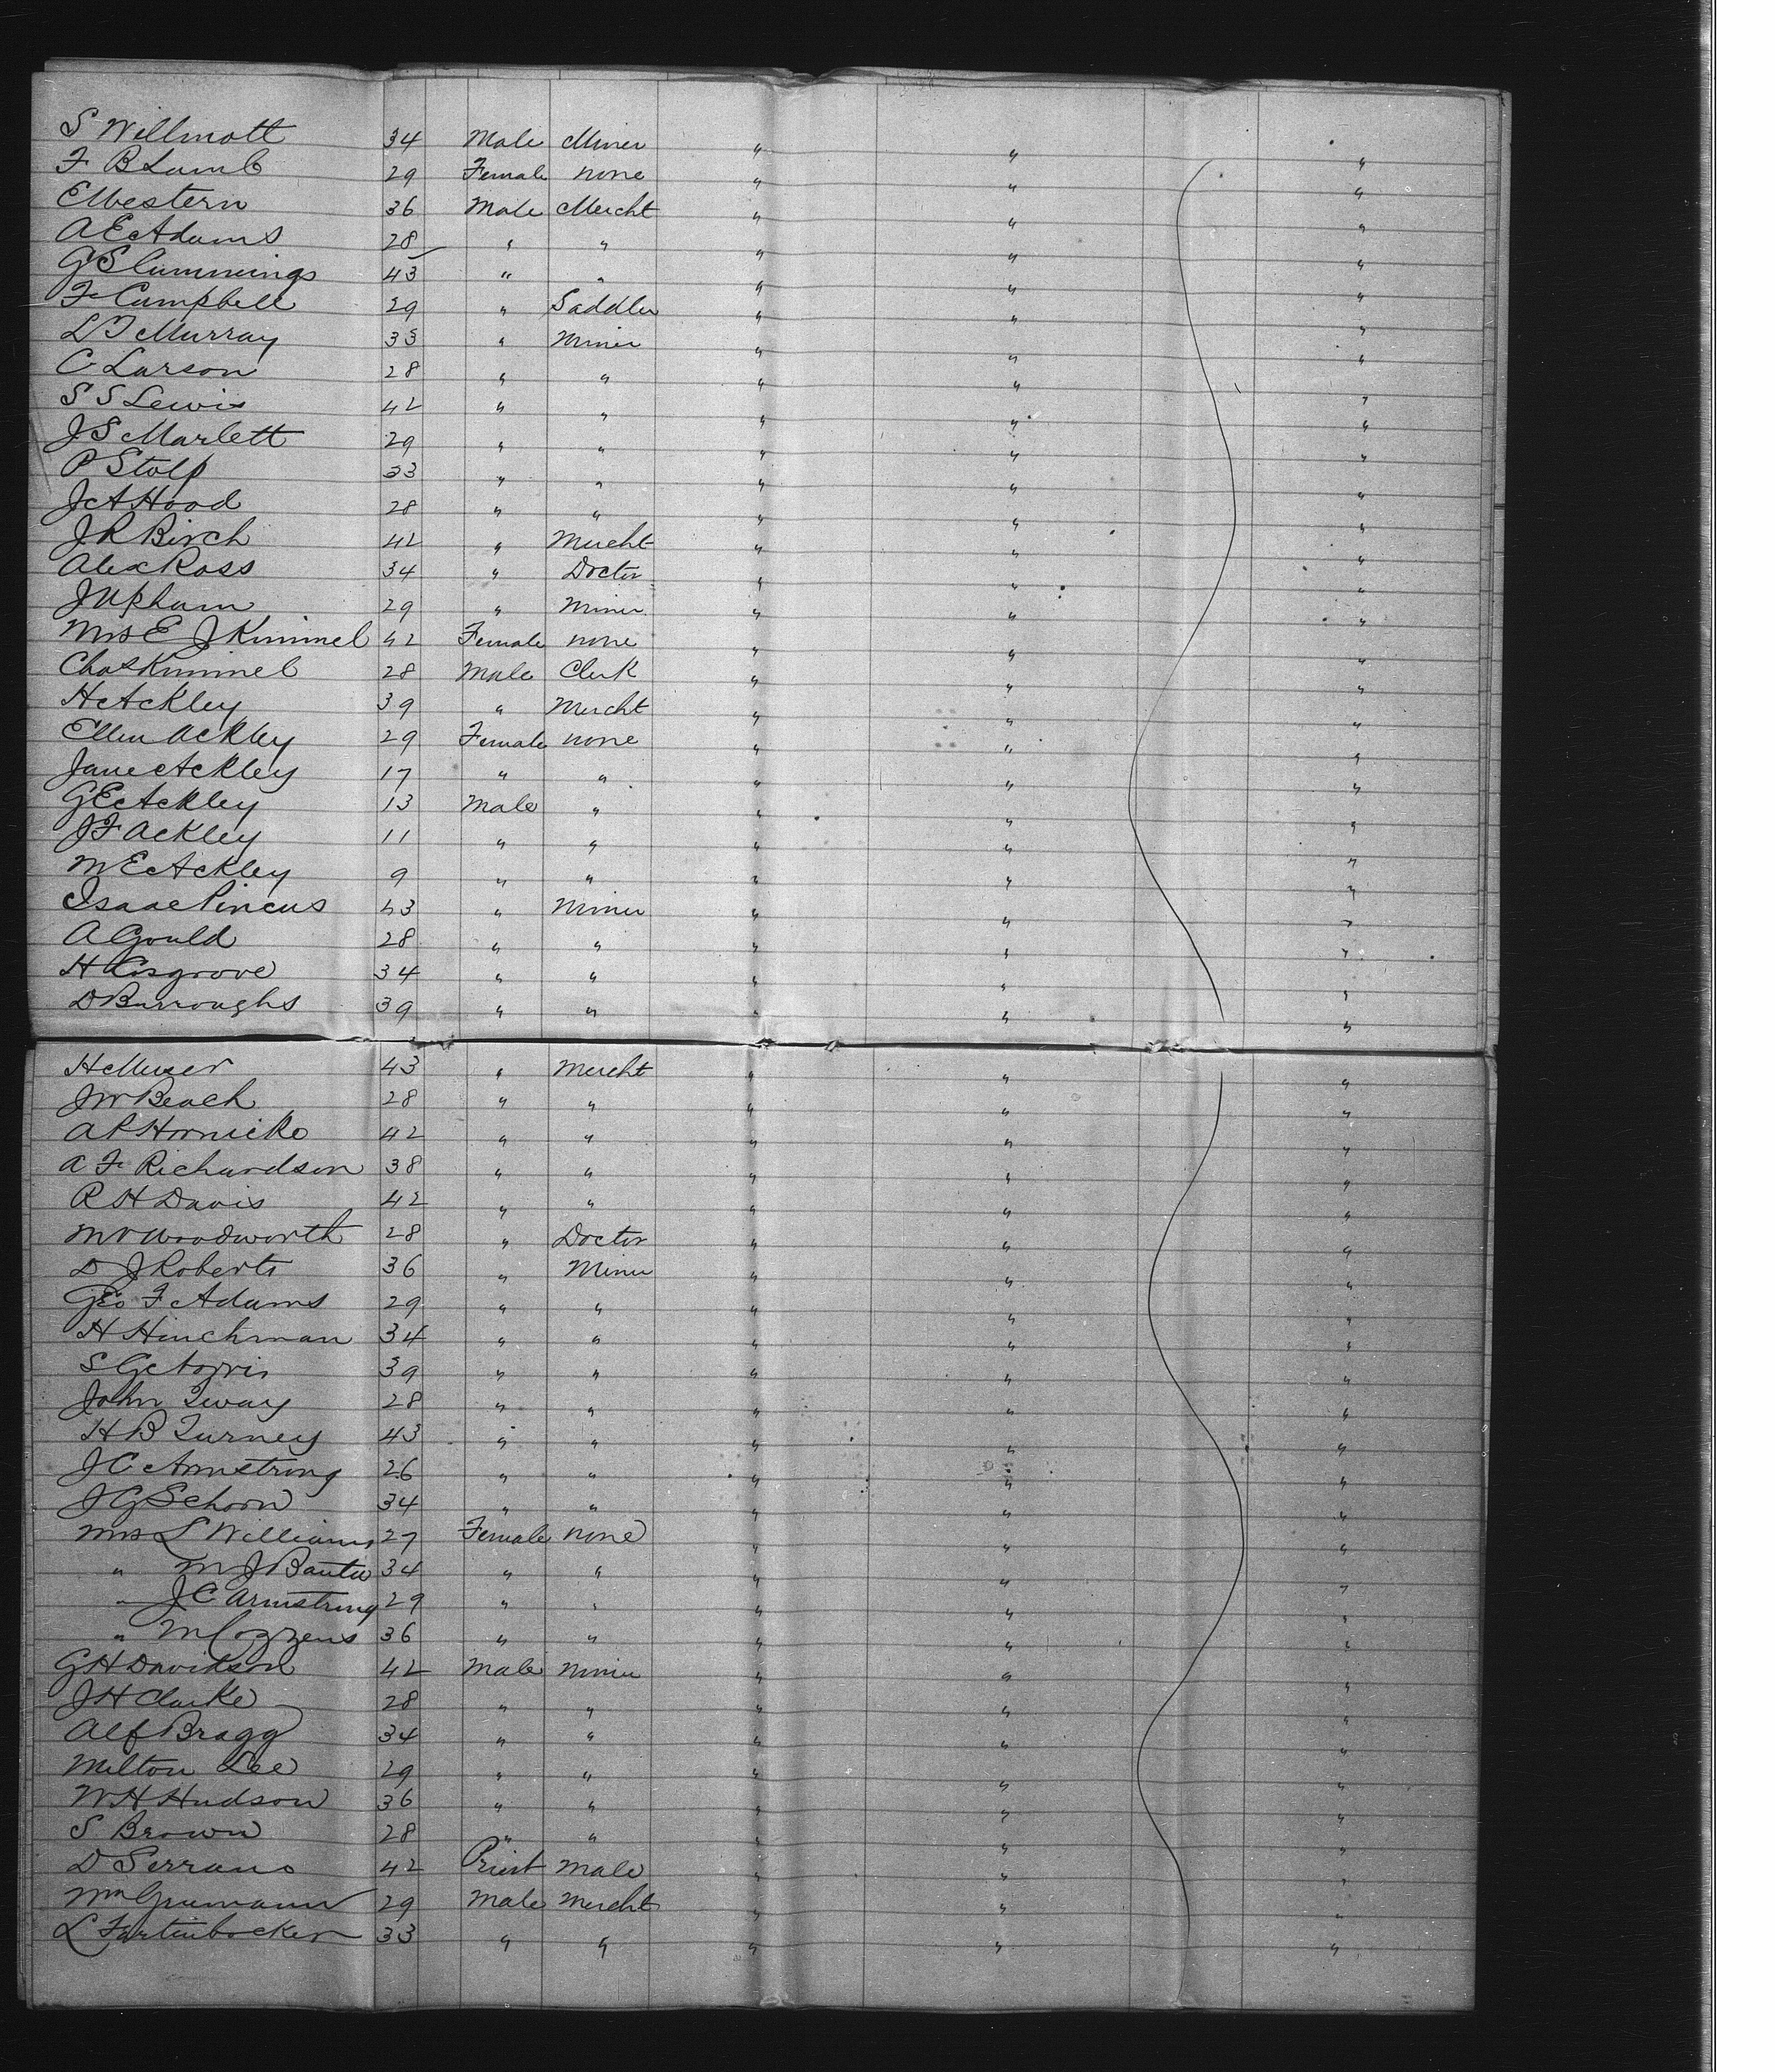 S Willmott 34 Male Miner " " "
F B Lamb 29 Female none " " "
E Western 36 Male Mercht " " "
A E Adams 28 " " " " "
G S Cummings 43 " " " " "
F Campbell 29 " Saddler " " "
L T Murray 33 " Miner " " "
C Larson 28 " " " " "
S S Lewis 42 " " " " "
J S Marlett 29 " " " " "
P Stolp 33 " " " " "
J A Hood 28 " " " " "
J R Birch 42 " Mercht " " "
Alex Ross 34 " Doctor " " "
J Upham 29 " Miner " " "
Mrs E J Kimmel 42 Female none " " "
Chas Kimmel 28 Male Clerk " " "
H Ackley 39 " Mercht " " "
Ellen Ackley 29 Female none " " "
Jane Ackley 17 " " " " "
G E Ackley 13 Male " " " "
J F Ackley 11 " " " " "
M E Ackley 9 " " " " "
Isaac Pincus 43 " Miner " " "
A Gould 28 " " " " "
H Cosgrove 34 " " " " "
D Burroughs 39 " " " " "
H Muser 43 " Mercht " " "
J W Beach 28 " " " " "
A P Hornicke 42 " " " " "
A F Richardson 38 " " " " "
R H Davis 42 " " " " "
M V Woodworth 28 " Doctor " " "
D J Roberts 36 " Miner " " "
Geo F Adams 29 " " " " "
H Hinchman 34 " " " " "
S G 39 " " " " "
John Tway 28 " " " " "
H B Turney 43 " " " " "
J C Armstrong 26 " " " " "
J G Schorn 34 " " " " "
Mrs L Williams 27 Female none " " "
" M J 34 " " " " "
" J C Armstrong 29 " " " " "
" M Cozzens 36 " " " " "
G H Davidson 42 Male Miner " " "
J H Clarke 28 " " " " "
Alf Bragg 34 " " " " "
Milton Lee 29 " " " " "
W H Hudson 36 " " " " "
S Brown 28 " " " " "
D Serrano 42 Priest Male " " "
Wm Grumann 29 Male Mercht " " "
L 33 " " " " "